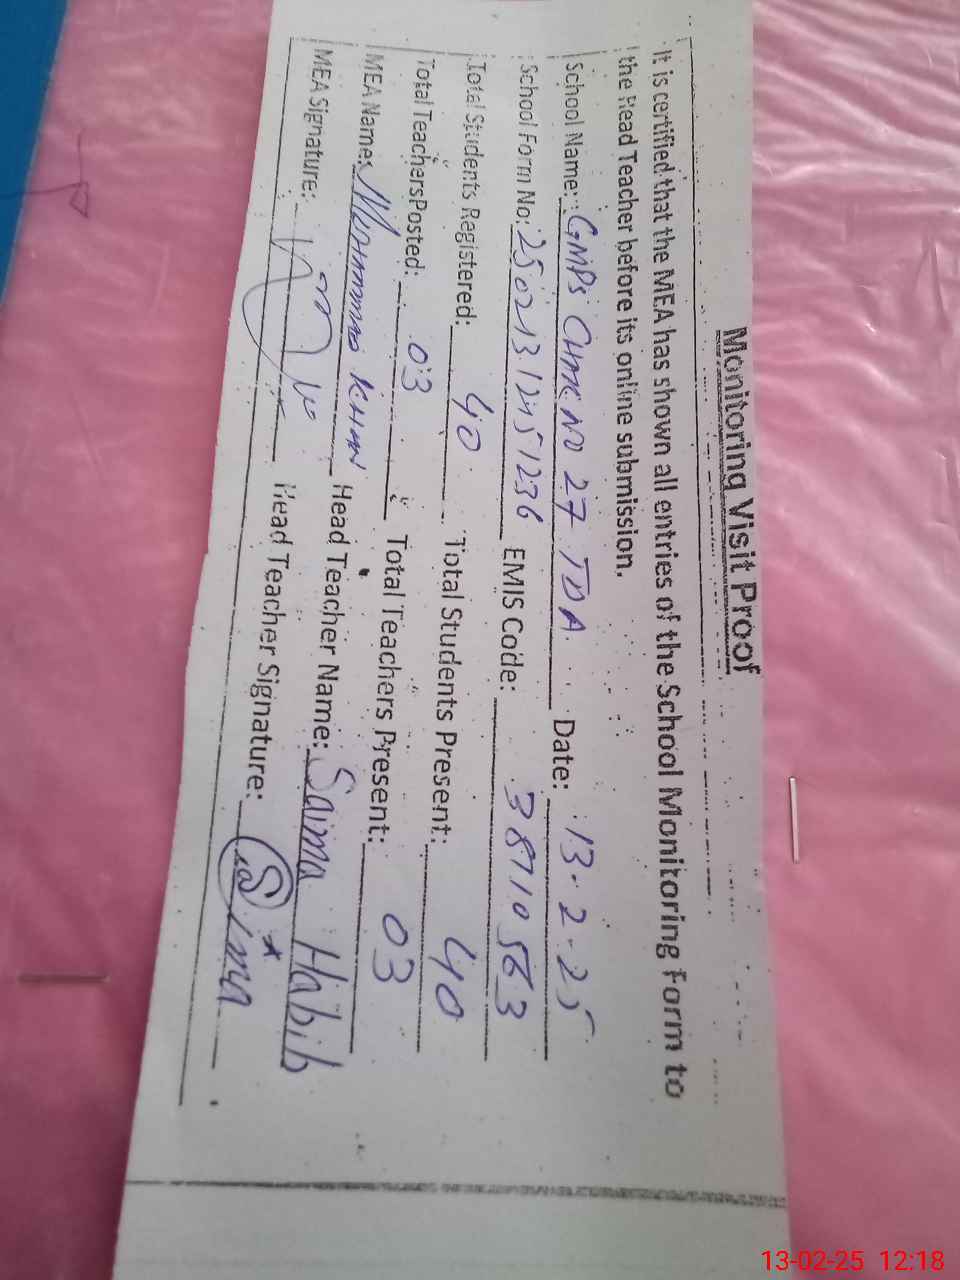 Monitoring Visit Proof
It is certified that the MEA has shown all entries of the School Monitoring Form to
the Head Teacher before its online submission.
School Name: GMPS CHAK NO 27 TDA Date: 13-2-25
School Form No: 250213 12451236 EMIS Code: 38710563
Total Students Registered: 40 Total Students Present: 40
Total Teachers Posted: 03 Total Teachers Present: 03
MEA Name: Muhammad KHAN Head Teacher Name: Saima Habib
MEA Signature: Head Teacher Signature: Saima
13-02-25 12:18